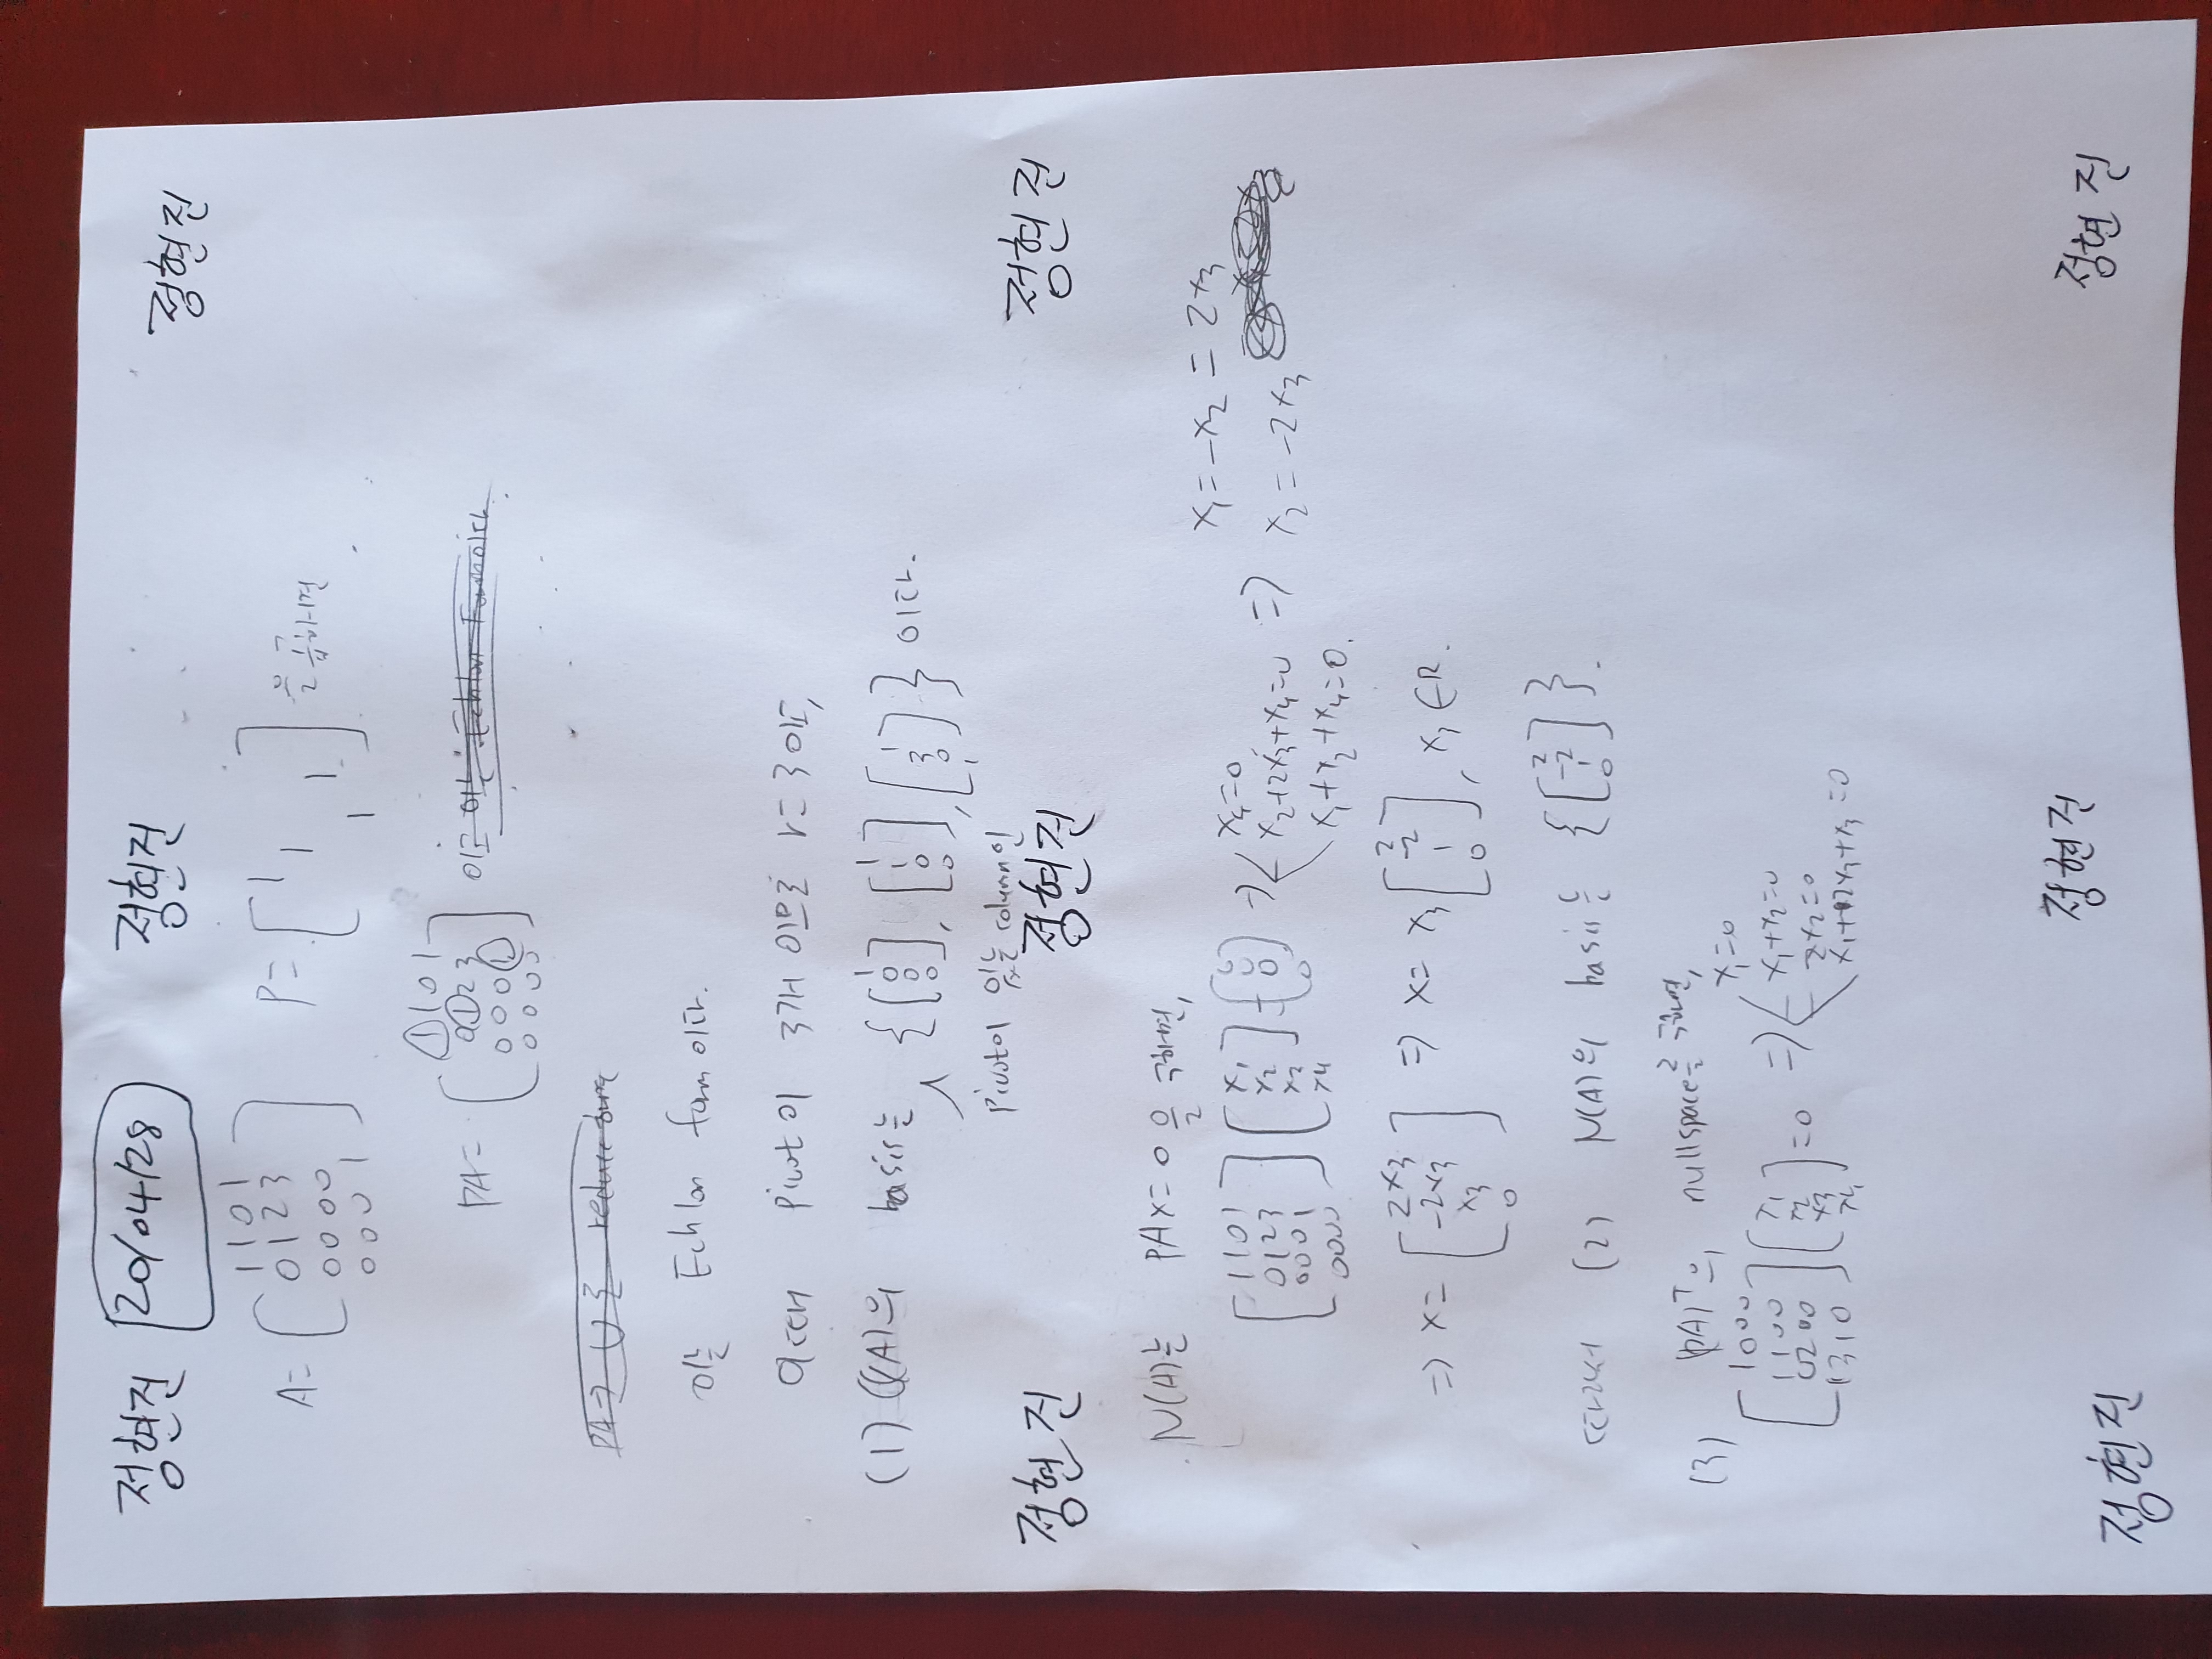 정현진 20/04/28 정현진 정현진
A= [ 1 1 0 1
0 1 2 3
0 0 0 0
0 0 0 1 ] P= [ 1
1
1
1 ] 을 곱하면
PA= [ 1 1 0 1
0 1 2 3
0 0 0 1
0 0 0 0 ] 이고 이는 Echlon Form이다
PA→ U로 reduce하면
이는 Echlon form이다.
이때 pivot이 3개 이므로 r=3이고,
(1) C(A)의 basis는 { [ 1 0 0 0 ], [ 1 1 0 0 ], [ 1 3 0 1 ] } 이다.
pivot이 있는 column인
정현진 정현진 정현진
N(A)는 PAx=0을 구하면,
[ 1 1 0 1
0 1 2 3
0 0 0 1
0 0 0 0 ] [ x1
x2
x3
x4 ] = [ 0
0
0
0 ] ⇒ x4=0
x2+2x3+x4=0
x1+x2+x4=0. ⇒ x1=-x2=2x3
x2=-2x3
⇒ x= [ 2x3
-2x3
x3
0 ] ⇒ x= x3 [ 2
-2
1
0 ], x3∈R.
따라서 (2) N(A)의 basis는 { [ 2 -2 1 0 ] }.
(3) (PA)ᵀ의 nullspace를 구하면,
[ 1 0 0 0
1 1 0 0
0 2 0 0
1 3 1 0 ] [ x1
x2
x3
x4 ] =0 ⇒ x1=0
x1+x2=0
2x2=0
정현진 정현진 정현진